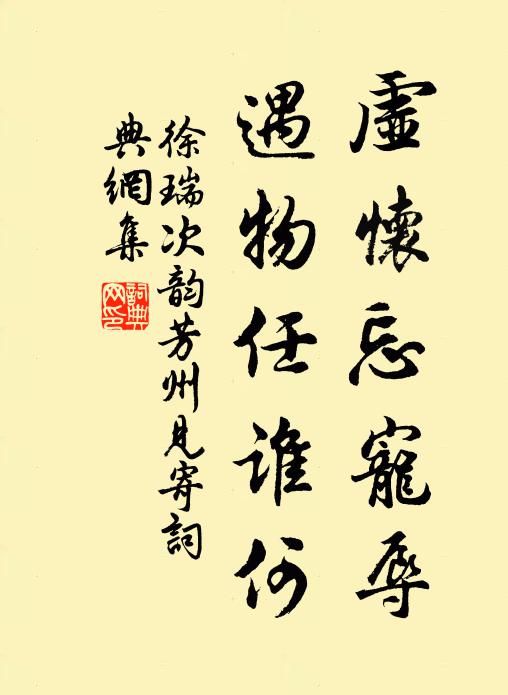 虛懷忘寵辱
遇物任誰何
徐瑞次韵芳州見寄詞
典網集
詞典網印